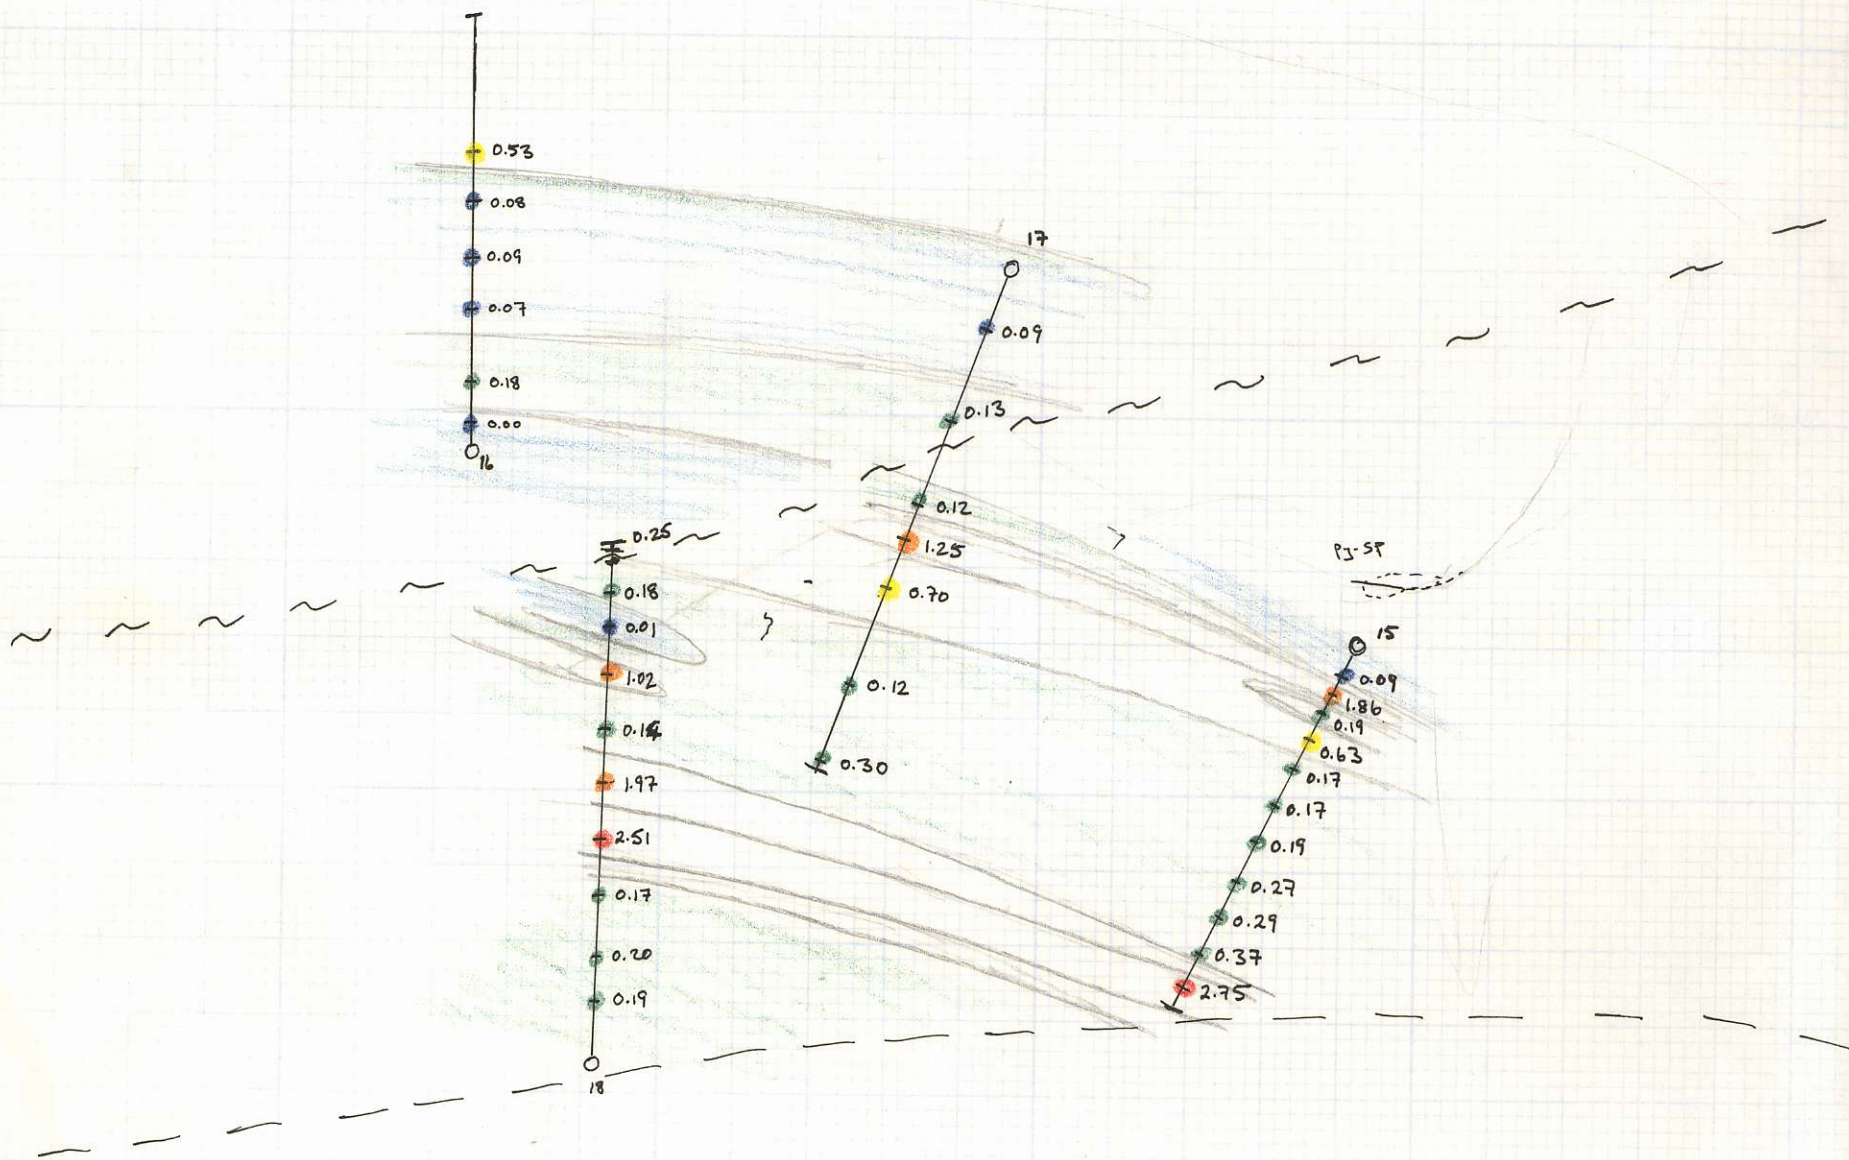 0.53
0.08
0.09
0.07
0.18
0.00
16
17
0.09
0.13
0.12
1.25
0.70
0.12
0.30
0.25
0.18
0.01
1.02
1.97
2.51
0.17
0.20
0.19
18
Py-SP
15
0.09
1.86
0.19
0.63
0.17
0.17
0.19
0.27
0.29
0.37
2.75